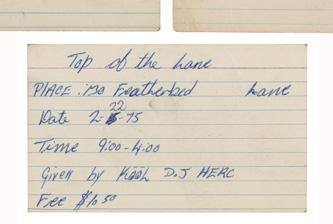 Top of the Lane
PLACE: 1730 Featherbed Lane
Date 2-22-75
Time 9:00-4:00
Given by Kool D.J HERC
Fee $1.50